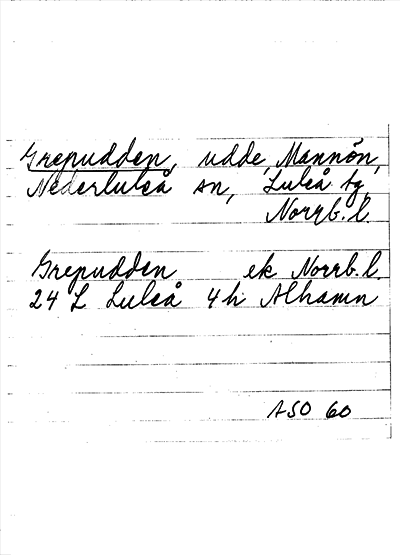 Grepudden, udde, Mannön,
Nederluleå sn, Luleå tg,
Norrb. l.
Grepudden ek Norrb. l.
24 L Luleå 4h Alhamn
ASO 60